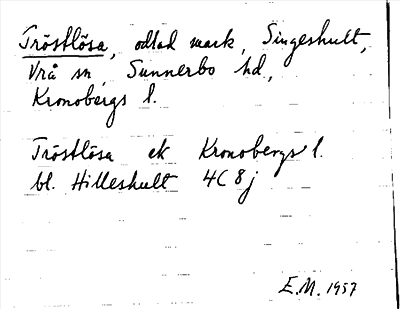 Tröstlösa, odlad mark, Singeshult,
Vrå sn, Sunnerbo hd,
Kronobergs l.
Tröstlösa ek Kronobergs l.
bl. Hilleshult 4C 8j
E.M. 1957